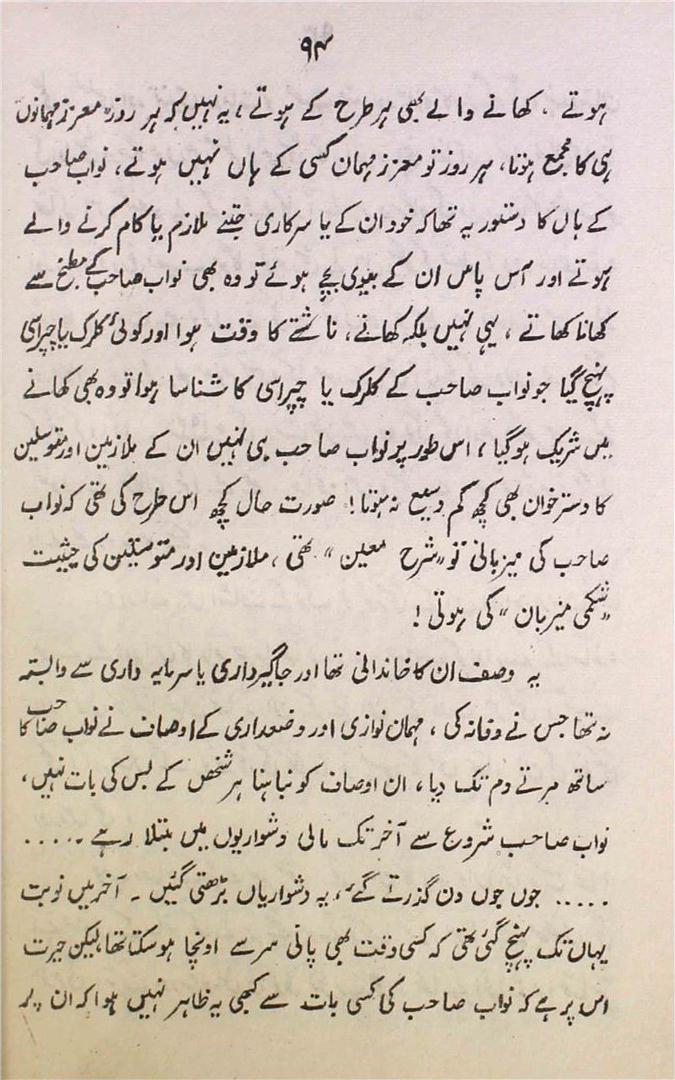 ۹۴
ہوتے ، کھانے والے بھی ہر طرح کے ہوتے ، یہ نہیں کہ ہر روز معزز مہمانوں
ہی کا مجمع ہوتا، ہر روز تو معزز مہمان کسی کے ہاں نہیں ہوتے، نواب صاحب
کے ہاں کا دستور یہ تھا کہ خود ان کے یا سرکاری جتنے ملازم یا کام کرنے والے
ہوتے اور آس پاس ان کے بیوی بچے ہوئے تو وہ بھی نواب صاحب کے مطبخ سے
کھانا کھاتے ، یہی نہیں بلکہ کھانے، ناشتے کا وقت ہوا اور کوئی کلرک یا چپراسی
پہنچ گیا جو نواب صاحب کے کلرک یا چپراسی کا شناسا ہوا تو وہ بھی کھانے
میں شریک ہو گیا ، اس طور پر نواب صاحب ہی نہیں ان کے ملازمین اور متوسلین
کا دسترخوان بھی کچھ کم وسیع نہ ہوتا! صورت حال کچھ اس طرح کی تھی کہ نواب
صاحب کی میزبانی تو "شرح معین" تھی ، ملازمین اور متوسلین کی حیثیت
"شکمی میزبان" کی ہوتی !
یہ وصف ان کا خاندانی تھا اور جاگیرداری یا سرمایہ داری سے وابستہ
نہ تھا جس نے وفا نہ کی ، مہمان نوازی اور وضعداری کے اوصاف نے نواب صاحب کا
ساتھ مرتے دم تک دیا ، ان اوصاف کو نباہنا ہر شخص کے بس کی بات نہیں،
نواب صاحب شروع سے آخر تک مالی دشواریوں میں مبتلا رہے .....
..... جوں جوں دن گذرتے گئے یہ دشواریاں بڑھتی گئیں ۔ آخر میں نوبت
یہاں تک پہنچ گئی تھی کہ کسی وقت بھی پانی سر سے اونچا ہو سکتا تھا لیکن حیرت
اس پر ہے کہ نواب صاحب کی کسی بات سے کبھی یہ ظاہر نہیں ہوا کہ ان پر